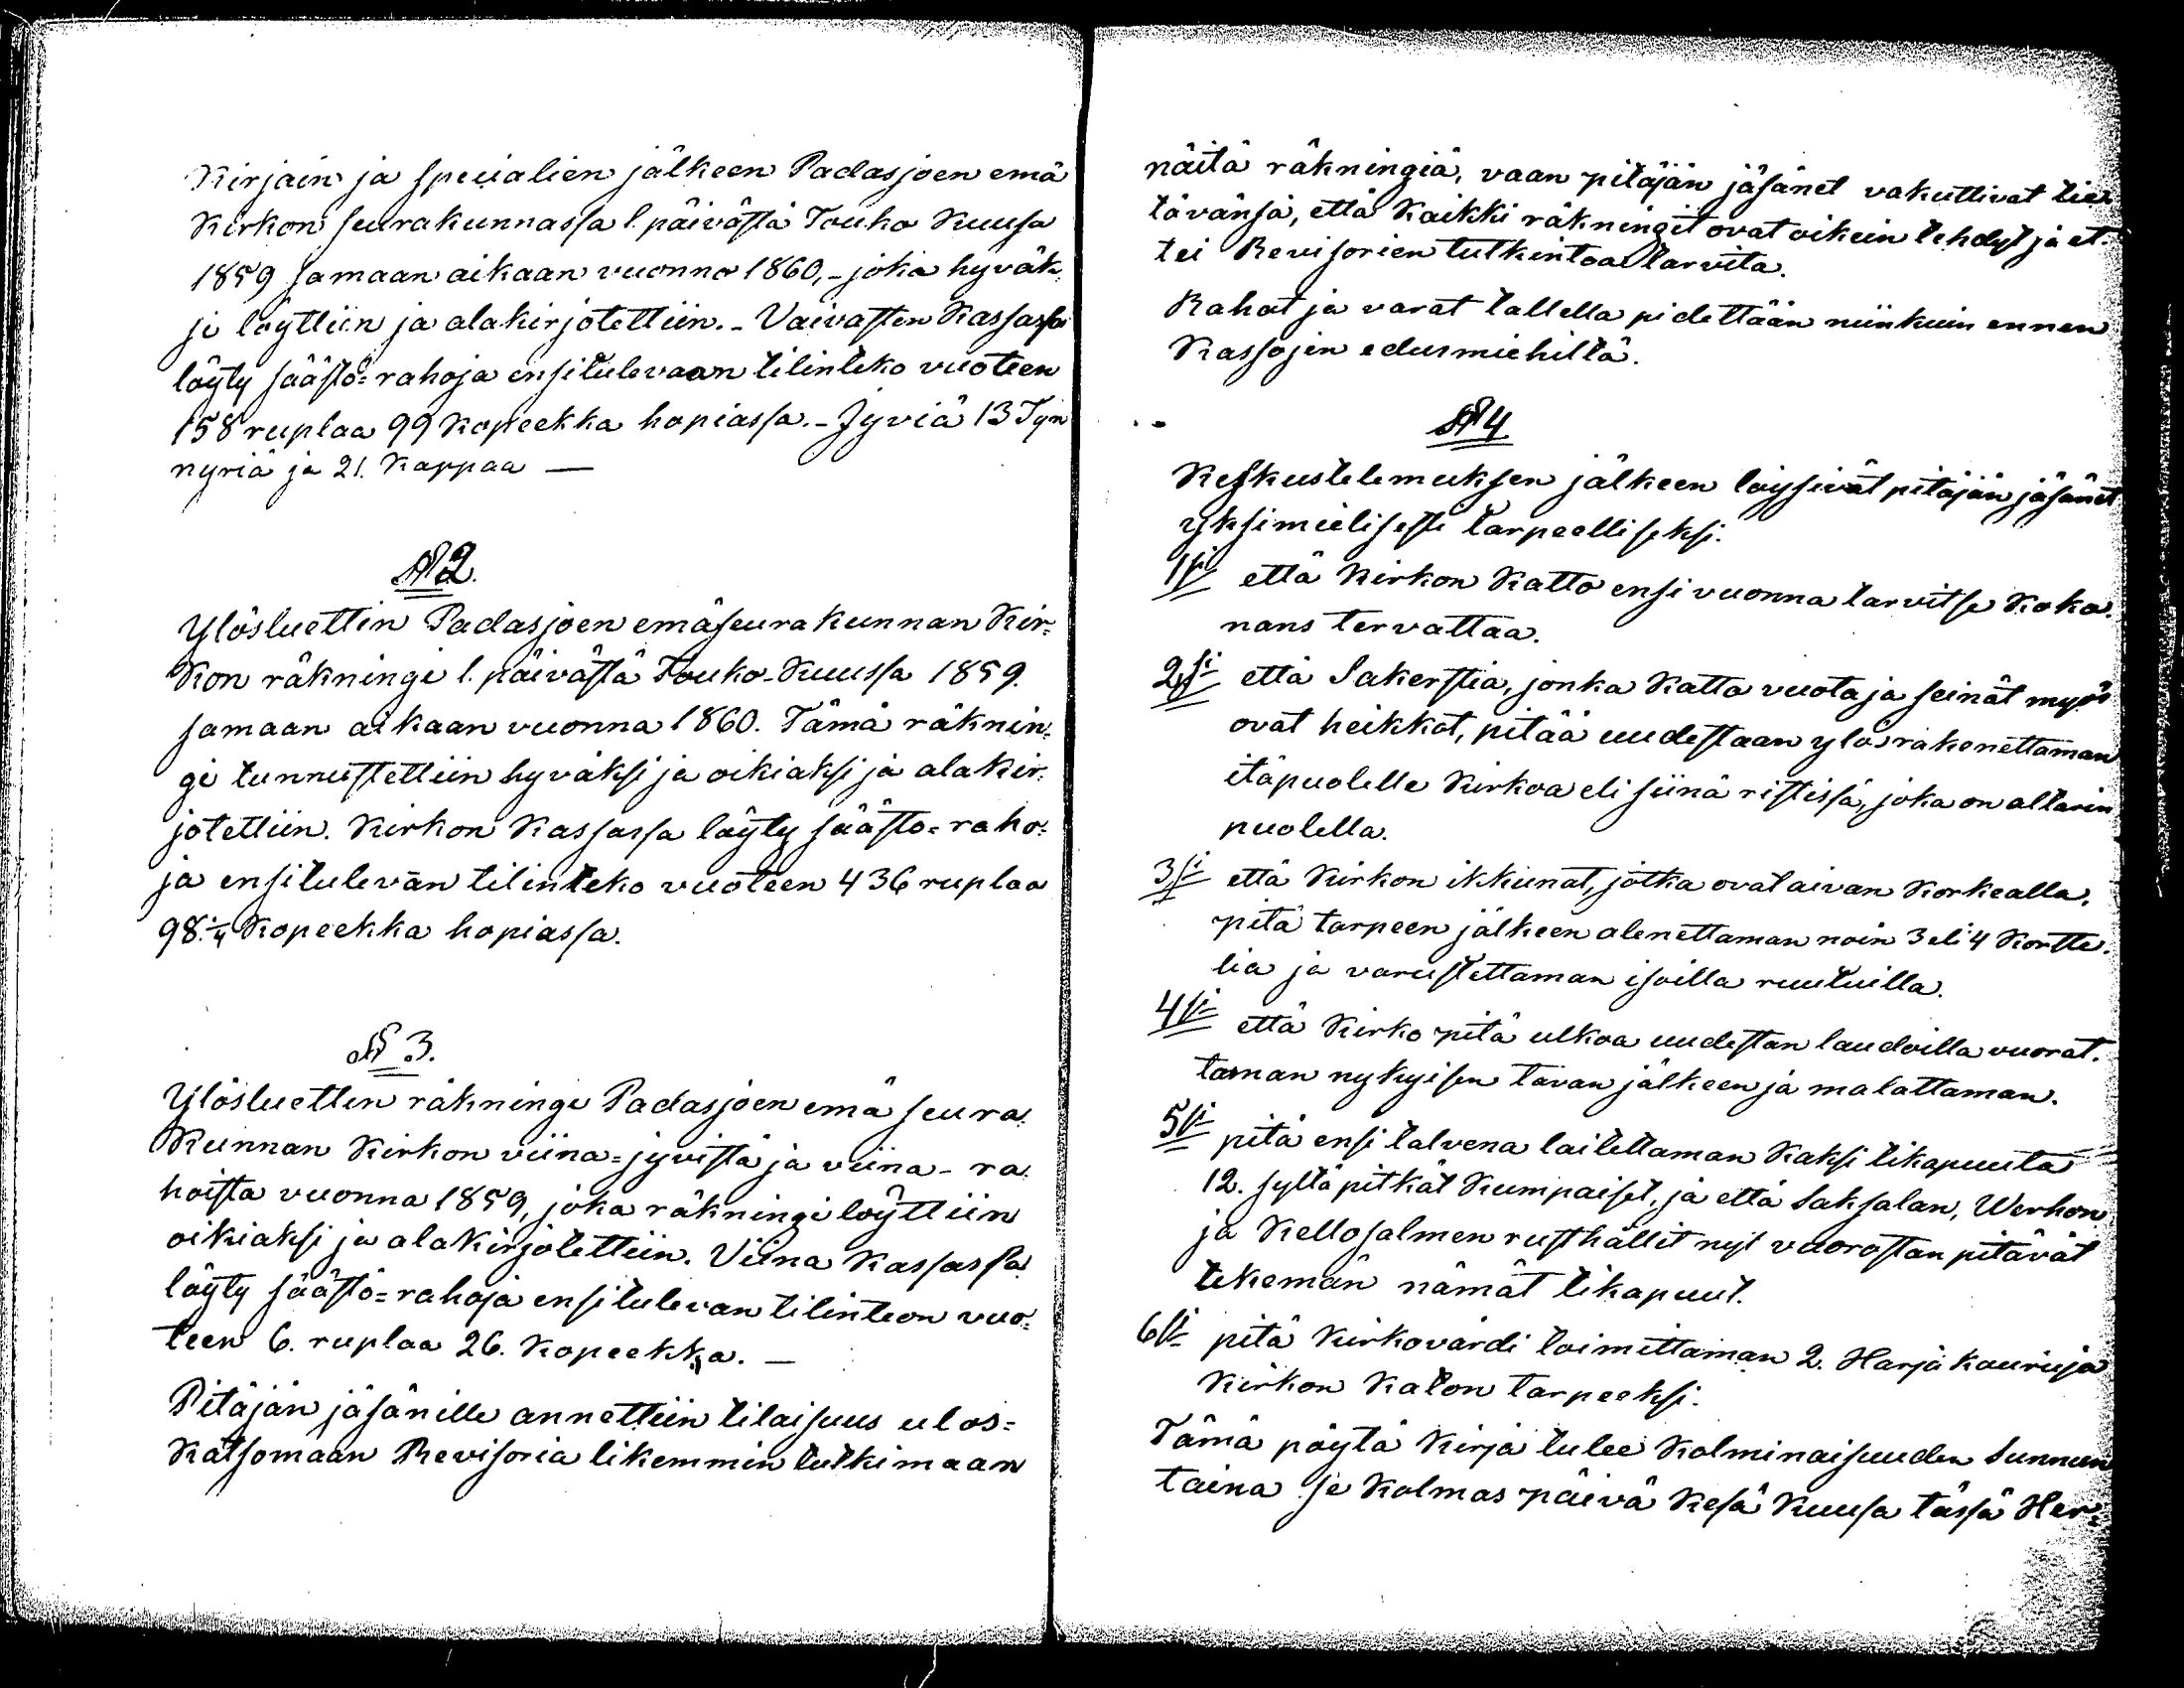 Kirjain ja specialien jälkeen Padasjoen emä
Kirkon seurakunnassa 1. päivästä Touko Kuusa
1859 samaan aikaan vuonna 1860, - joka hyväk-
si löyttiin ja alakirjotettiin. - Vaivasten Kassassa
löyty säästö=rahoja ensitulevaan tilinteko vuoteen
158 ruplaa 99 Kopeekka hopiassa. - Jyviä 13 Tyn
nyriä ja 21. Kappaa —
§ 2.
Ylösluettin Padasjoen emäseurakunnan Kir-
kon räkningi 1. päivästä Touko-Kuussa 1859.
samaan aikaan vuonna 1860. Tämä räknin-
gi tunnustettiin hyväksi ja oikiaksi ja alakir-
jotettiin. Kirkon Kassassa löyty säästo=raho-
ja ensitulevan tilinteko vuoteen 436 ruplaa
98 1/4 Kopeekka hopiassa.
§ 3.
Ylösluettin räkningi Padasjoen emä seura-
Kunnan Kirkon viina=jyvistä ja viina-ra-
hoista vuonna 1859, joka räkningi löyttiin
oikiaksi ja alakirjotettiin. Viina Kassassa
löyty säästö=rahoja ensitulevan tilinteon vuo-
teen 6. ruplaa 26. Kopeekka. —
Pitäjän jäsänille annettiin tilaisuus ulos=
Katsomaan Revisoria likemmin tutkimaan
näitä räkningiä, vaan pitäjän jäsänet vakuttivat tie-
tävänsä, että Kaikki räkningit ovat oikein tehdyt ja et-
tei Revisorien tutkintoa tarvita.
Rahat ja varat tallella pidettään niinkuin ennen
Kassojen edusmiehiltä.
§ 4
Keskustelemuksen jälkeen löysivät pitäjän jäsänet
yksimielisesti tarpeelliseksi.
1si että Kirkon Katto ensi vuonna tarvitse Koko-
nans tervattaa.
2si että Sakerstia, jonka Katto vuota ja seinät myös
ovat heikkot, pitää uudestaan ylösrakenettaman
itäpuolelle Kirkoa eli siinä ristissä, joka on altarin
puolella.
3si että Kirkon ikkunat, jotka ovat aivan Korkealla,
pitä tarpeen jälkeen alenettaman noin 3 eli 4 Kortte-
lia ja varustettaman isoilla ruutuilla.
4si että Kirko pitä ulkoa uudestan laudoilla vuorat-
taman nykyisen tavan jälkeen ja malattaman.
5si pitä ensi talvena laitettaman Kaksi tikapuuta
12. syltä pitkät Kumpaiset, ja että Saksalan, Werhon
ja Kellosalmen rusthållit nyt vuorostan pitävät
tekemän nämät tikapuut.
6si pitä Kirkovärdi toimittaman 2. Harja kouruja
Kirkon Katon tarpeeksi.
Tämä pöytä Kirja tulee Kolminaisuuden Sunnun
taina se Kolmas päivä Kesä Kuusa tässä Her-